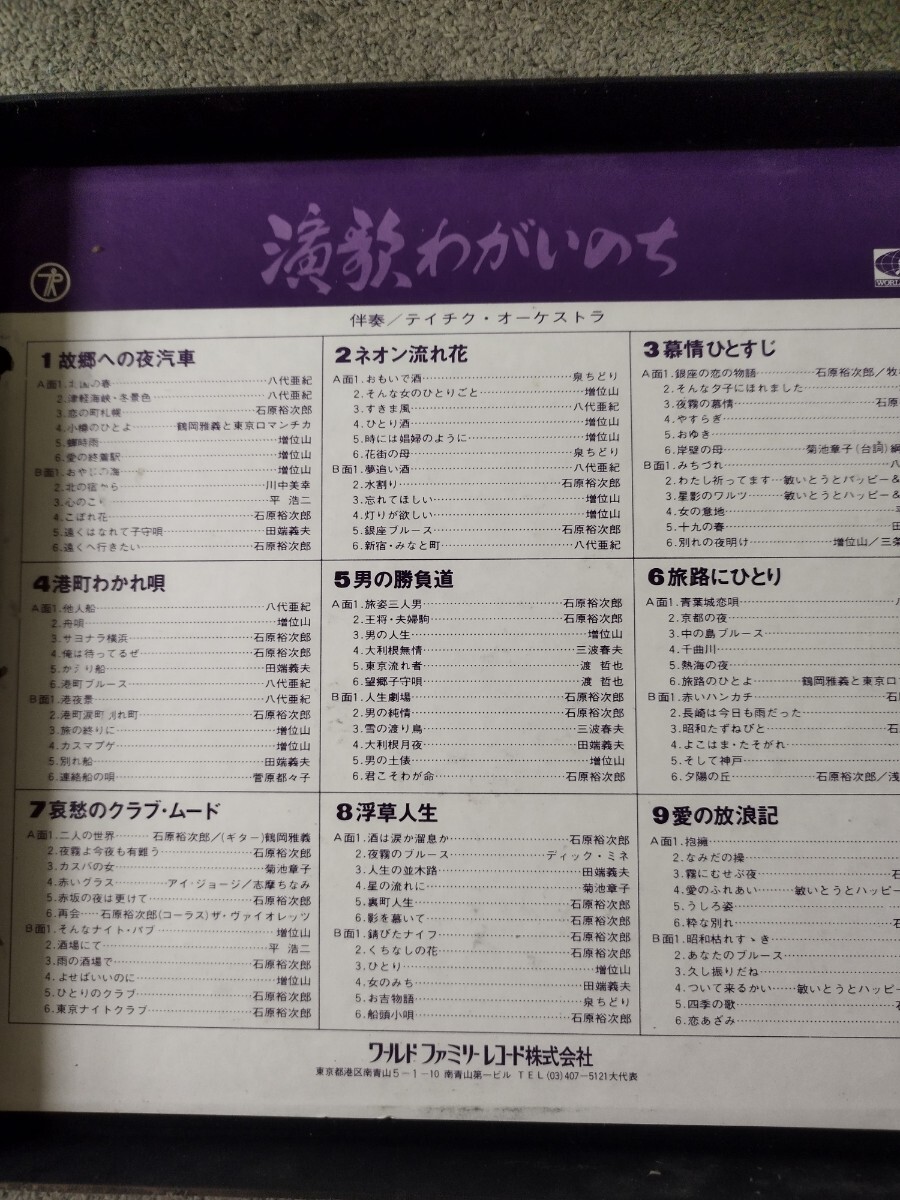 演歌わがいのち
WORL
伴奏/テイチク・オーケストラ
1 故郷への夜汽車
A面1. の春 八代亜紀
2.津軽海峡・冬景色 八代亜紀
3.恋の町札幌 石原裕次郎
4.小樽のひとよ 鶴岡雅義と東京ロマンチカ
5.蟬時雨 増位山
6.愛の終着駅 増位山
B面1.おやじの海 増位山
2.北の宿から 川中美幸
3.心のこり 平 浩二
4.こぼれ花 石原裕次郎
5.遠くはなれて子守唄 田端義夫
6.遠くへ行きたい 石原裕次郎
2 ネオン流れ花
A面1.おもいで酒 泉ちどり
2.そんな女のひとりごと 増位山
3.すきま風 八代亜紀
4.ひとり酒 増位山
5.時には娼婦のように 増位山
6.花街の母 泉ちどり
B面1.夢追い酒 八代亜紀
2.水割り 石原裕次郎
3.忘れてほしい 増位山
4.灯りが欲しい 増位山
5.銀座ブルース 石原裕次郎
6.新宿・みなと町 八代亜紀
3 慕情ひとすじ
A面1.銀座の恋の物語 石原裕次郎/牧
2.そんな夕子にほれました
3.夜霧の慕情 石原
4.やすらぎ
5.おゆき
6.岸壁の母 菊池章子(台詞)綱
B面1.みちづれ 八
2.わたし祈ってます 敏いとうとハッピー&
3.星影のワルツ 敏いとうとハッピー&
4.女の意地
5.十九の春 田
6.別れの夜明け 増位山/三条
4 港町わかれ唄
A面1.他人船 八代亜紀
2.舟唄 増位山
3.サヨナラ横浜 石原裕次郎
4.俺は待ってるぜ 石原裕次郎
5.かえり船 田端義夫
6.港町ブルース 八代亜紀
B面1.港夜景 八代亜紀
2.港町涙町別れ町 石原裕次郎
3.旅の終りに 増位山
4.カスマプゲ 増位山
5.別れ船 田端義夫
6.連絡船の唄 菅原都々子
5 男の勝負道
A面1.旅姿三人男 石原裕次郎
2.王将・夫婦駒 石原裕次郎
3.男の人生 増位山
4.大利根無情 三波春夫
5.東京流れ者 渡 哲也
6.望郷子守唄 渡 哲也
B面1.人生劇場 石原裕次郎
2.男の純情 石原裕次郎
3.雪の渡り鳥 三波春夫
4.大利根月夜 田端義夫
5.男の土俵 増位山
6.君こそわが命 石原裕次郎
6 旅路にひとり
A面1.青葉城恋唄
2.京都の夜
3.中の島ブルース
4.千曲川
5.熱海の夜
6.旅路のひとよ 鶴岡雅義と東京ロ
B面1.赤いハンカチ 石
2.長崎は今日も雨だった
3.昭和たずねびと 石
4.よこはま・たそがれ
5.そして神戸
6.夕陽の丘 石原裕次郎/浅
7 哀愁のクラブ・ムード
A面1.二人の世界 石原裕次郎/(ギター)鶴岡雅義
2.夜霧よ今夜も有難う 石原裕次郎
3.カスバの女 菊池章子
4.赤いグラス アイ・ジョージ/志摩ちなみ
5.赤坂の夜は更けて 石原裕次郎
6.再会 石原裕次郎(コーラス)ザ・ヴァイオレッツ
B面1.そんなナイト・パブ 増位山
2.酒場にて 平 浩二
3.雨の酒場で 石原裕次郎
4.よせばいいのに 増位山
5.ひとりのクラブ 石原裕次郎
6.東京ナイトクラブ 石原裕次郎
8 浮草人生
A面1.酒は涙か溜息か 石原裕次郎
2.夜霧のブルース ディック・ミネ
3.人生の並木路 田端義夫
4.星の流れに 菊池章子
5.裏町人生 石原裕次郎
6.影を慕いて 石原裕次郎
B面1.錆びたナイフ 石原裕次郎
2.くちなしの花 石原裕次郎
3.ひとり 増位山
4.女のみち 田端義夫
5.お吉物語 泉ちどり
6.船頭小唄 石原裕次郎
9 愛の放浪記
A面1.抱擁
2.なみだの操
3.霧にむせぶ夜 石
4.愛のふれあい 敏いとうとハッピー
5.うしろ姿
6.粋な別れ 石
B面1.昭和枯れすゝき
2.あなたのブルース
3.久し振りだね
4.ついて来るかい 敏いとうとハッピー
5.四季の歌 石
6.恋あざみ
ワールドファミリーレコード株式会社
東京都港区南青山5-1-10 南青山第一ビル TEL(03)407-5121大代表